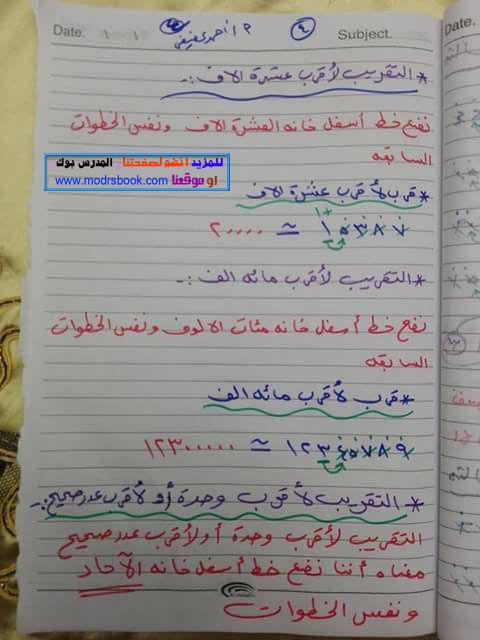 Date. ١ ١ م/ أحمد عفيفي ٤ Subject.
* التقريب لأقرب عشرة الاف :-
نضع خط أسفل خانه العشرة الاف ونفس الخطوات
السابقه
للمزيد انضم لصفحتنا المدرس بوك
او موقعنا www.modrsbook.com
* قرب لأقرب عشرة الاف
١٥٣٨٧ ≃ ٢٠٠٠٠
١+
* التقريب لأقرب مائه الف :-
نضع خط أسفل خانه مئات الالوف ونفس الخطوات
السابقه
* قرب لأقرب مائه الف
≃ ١٢٣٠٠٠٠٠
* التقريب لأقرب وحدة أو لأقرب عدد صحيح :-
التقريب لأقرب وحدة أو لأقرب عدد صحيح
معناه أننا نضع خط أسفل خانه الآحاد
ونفس الخطوات
Date.